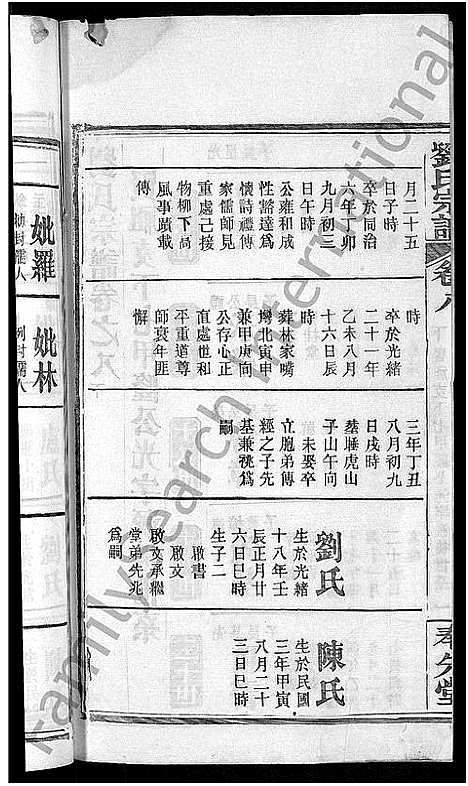 劉氏宗譜
卷八
奉先堂
月二十五
日子時
卒於同治
六年丁卯
九月初三
日午時
公雍和成
性豁達爲
懷詩禮傳
家儒師見
重處己接
物柳下高
風事蹟載
傳
時
卒於光緒
二十一年
乙未八月
十六日辰
時
葬林家嘴
塆北寅申
兼甲庚向
公存心正
直處世和
平重道尊
師衰年匪
懈
三年丁丑
八月初九
日戌時
塟睡虎山
子山午向
未娶卒
立胞弟傳
經之子先
基兼祧爲
嗣
劉氏
生於光緒
十八年壬
辰正月廿
六日巳時
生子二
啟書
啟文
啟文承繼
堂弟先兆
爲嗣
陳氏
生於民國
三年甲寅
八月二十
三日巳時
妣羅
勅封孺人
妣林
例封孺人
family search international